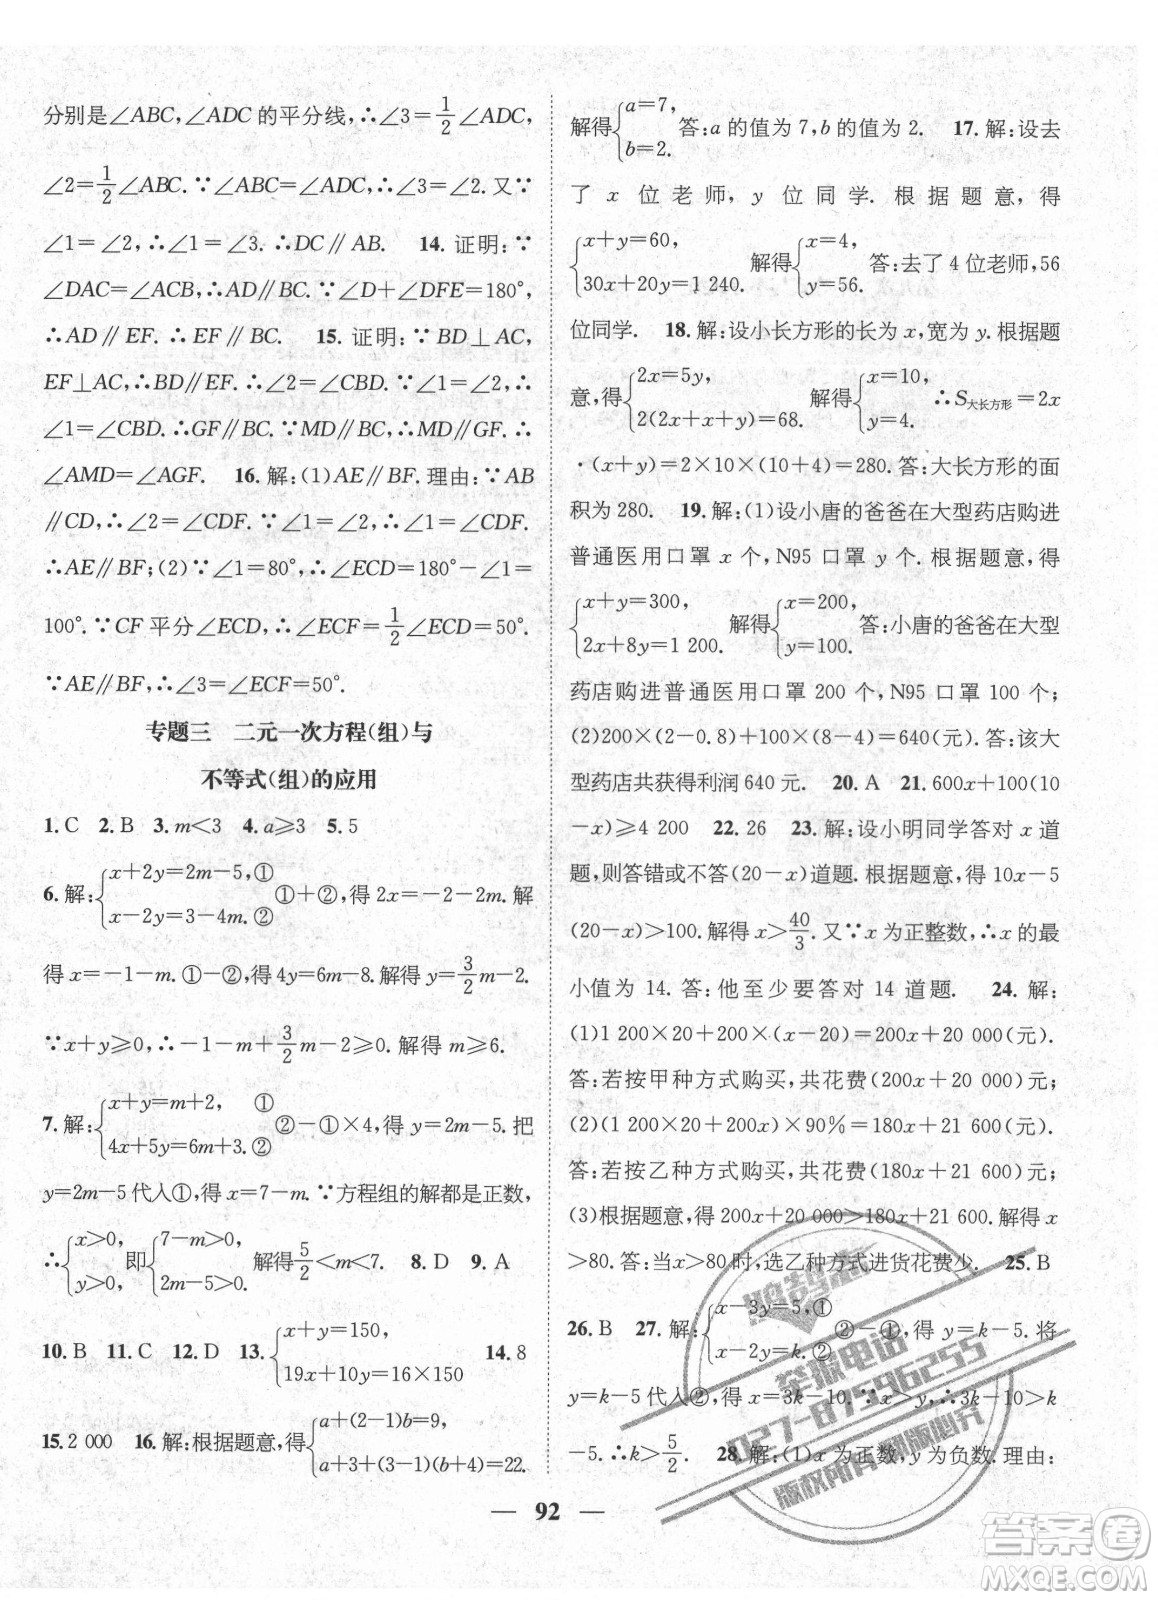 分别是∠ABC,∠ADC的平分线,∴∠3=1/2∠ADC,
∠2=1/2∠ABC.∵∠ABC=∠ADC,∴∠3=∠2.又∵
∠1=∠2,∴∠1=∠3.∴DC∥AB. 14.证明:∵
∠DAC=∠ACB,∴AD∥BC.∵∠D+∠DFE=180°,
∴AD∥EF.∴EF∥BC. 15.证明:∵BD⊥AC,
EF⊥AC,∴BD∥EF.∴∠2=∠CBD.∵∠2=∠1,∴
∠1=∠CBD.∴GF∥BC.∵MD∥BC,∴MD∥GF.∴
∠AMD=∠AGF. 16.解:(1)AE∥BF.理由:∵AB
∥CD,∴∠2=∠CDF.∵∠1=∠2,∴∠1=∠CDF.
∴AE∥BF;(2)∵∠1=80°,∴∠ECD=180°-∠1=
100°.∵CF平分∠ECD,∴∠ECF=1/2∠ECD=50°.
∵AE∥BF,∴∠3=∠ECF=50°.
专题三 二元一次方程(组)与
不等式(组)的应用
1.C 2.B 3.m<3 4.a≥3 5.5
6.解:{x+2y=2m-5,① x-2y=3-4m.② ①+②,得2x=-2-2m.解
得x=-1-m.①-②,得4y=6m-8.解得y=3/2m-2.
∵x+y≥0,∴-1-m+3/2m-2≥0.解得m≥6.
7.解:{x+y=m+2, ① 4x+5y=6m+3.② ②-①×4,得y=2m-5.把
y=2m-5代入①,得x=7-m.∵方程组的解都是正数,
∴{x>0, y>0, 即{7-m>0, 2m-5>0. 解得5/2<m<7. 8.D 9.A
10.B 11.C 12.D 13.{x+y=150, 19x+10y=16×150 14.8
15.2 000 16.解:根据题意,得{a+(2-1)b=9, a+3+(3-1)(b+4)=22.
解得{a=7, b=2. 答:a的值为7,b的值为2. 17.解:设去
了x位老师,y位同学.根据题意,得
{x+y=60, 30x+20y=1 240. 解得{x=4, y=56. 答:去了4位老师,56
位同学. 18.解:设小长方形的长为x,宽为y.根据题
意,得{2x=5y, 2(2x+x+y)=68. 解得{x=10, y=4. ∴S大长方形=2x
·(x+y)=2×10×(10+4)=280.答:大长方形的面
积为280. 19.解:(1)设小唐的爸爸在大型药店购进
普通医用口罩x个,N95口罩y个.根据题意,得
{x+y=300, 2x+8y=1 200. 解得{x=200, y=100. 答:小唐的爸爸在大型
药店购进普通医用口罩200个,N95口罩100个;
(2)200×(2-0.8)+100×(8-4)=640(元).答:该大
型药店共获得利润640元. 20.A 21.600x+100(10
-x)≥4 200 22.26 23.解:设小明同学答对x道
题,则答错或不答(20-x)道题.根据题意,得10x-5
(20-x)>100.解得x>40/3.又∵x为正整数,∴x的最
小值为14.答:他至少要答对14道题. 24.解:
(1)1 200×20+200×(x-20)=200x+20 000(元).
答:若按甲种方式购买,共花费(200x+20 000)元;
(2)(1 200×20+200x)×90%=180x+21 600(元).
答:若按乙种方式购买,共花费(180x+21 600)元;
(3)根据题意,得200x+20 000>180x+21 600.解得x
>80.答:当x>80时,选乙种方式进货花费少. 25.B
26.B 27.解:{x-3y=5,① x-2y=k.② ②-①,得y=k-5.将
y=k-5代入②,得x=3k-10.∵x>y,∴3k-10>k
-5.∴k>5/2. 28.解:(1)x为正数,y为负数.理由:
— 92 —
举报电话
027-87596255
版权所有 翻版必究
答案卷
MXQE.COM